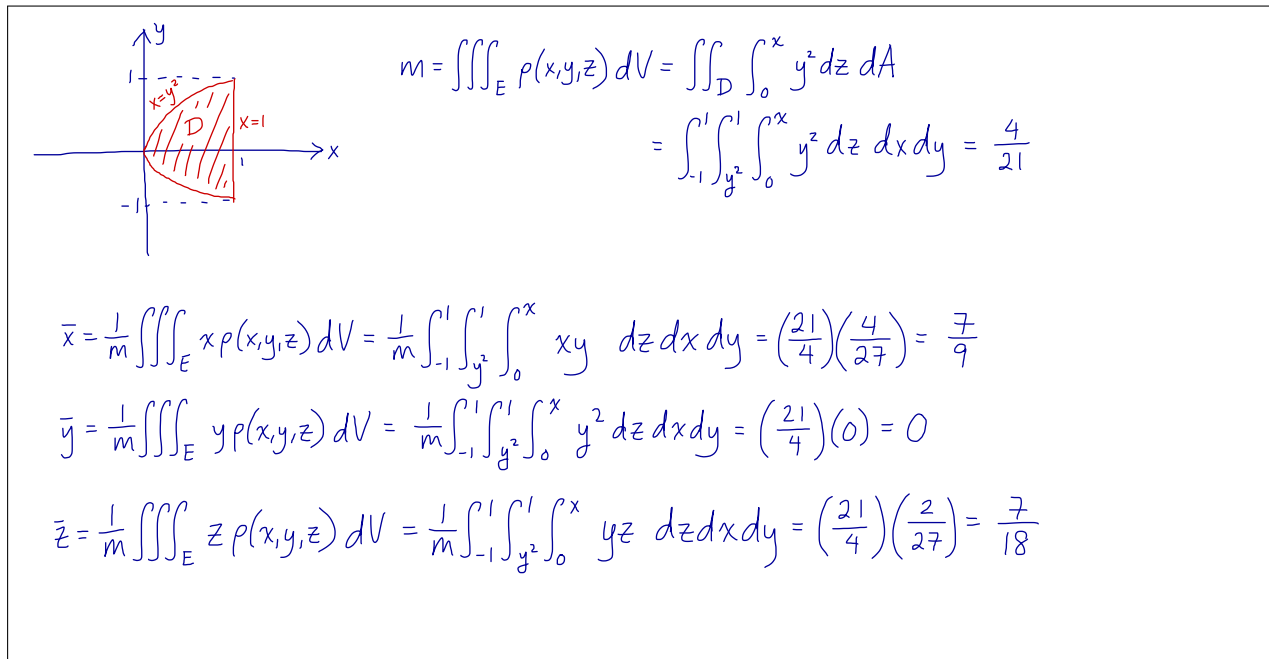 y
1
x=y²
D
x=1
x
1
-1
m = ∭_E ρ(x,y,z) dV = ∬_D ∫_0^x y² dz dA
= ∫_{-1}^1 ∫_{y²}^1 ∫_0^x y² dz dx dy = 4/21
x̄ = 1/m ∭_E x ρ(x,y,z) dV = 1/m ∫_{-1}^1 ∫_{y²}^1 ∫_0^x xy dz dx dy = (21/4)(4/27) = 7/9
ȳ = 1/m ∭_E y ρ(x,y,z) dV = 1/m ∫_{-1}^1 ∫_{y²}^1 ∫_0^x y² dz dx dy = (21/4)(0) = 0
z̄ = 1/m ∭_E z ρ(x,y,z) dV = 1/m ∫_{-1}^1 ∫_{y²}^1 ∫_0^x yz dz dx dy = (21/4)(2/27) = 7/18